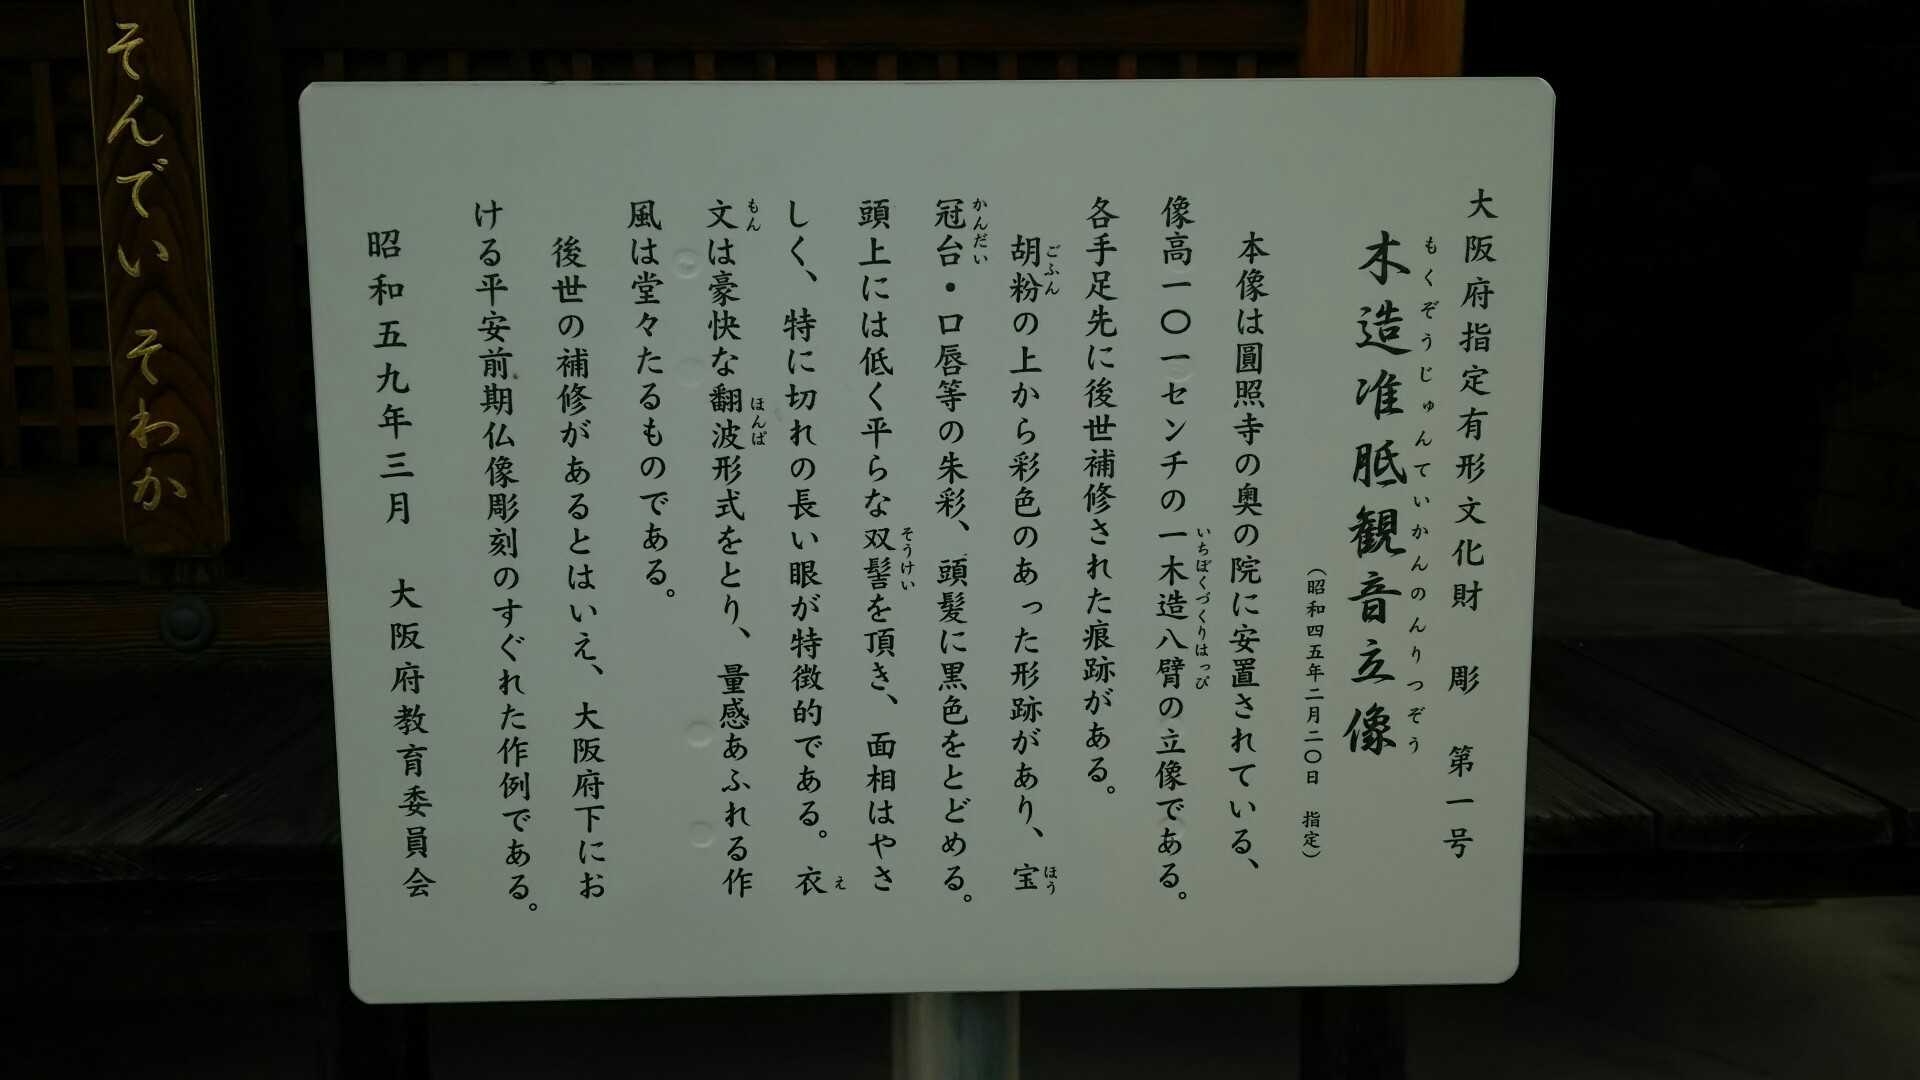 大阪府指定有形文化財　彫　第一号
もくぞうじゅんていかんのんりつぞう
木造准胝観音立像
（昭和四五年二月二〇日　指定）
本像は圓照寺の奥の院に安置されている、
像高一〇一センチの一木造八臂の立像である。
いちぼくづくりはっぴ
各手足先に後世補修された痕跡がある。
胡粉の上から彩色のあった形跡があり、宝
ごふん
ほう
冠台・口唇等の朱彩、頭髪に黒色をとどめる。
かんだい
頭上には低く平らな双髻を頂き、面相はやさ
そうけい
しく、特に切れの長い眼が特徴的である。衣
え
文は豪快な翻波形式をとり、量感あふれる作
もん
ほんぱ
風は堂々たるものである。
後世の補修があるとはいえ、大阪府下にお
ける平安前期仏像彫刻のすぐれた作例である。
昭和五九年三月　大阪府教育委員会
そんでい そわか